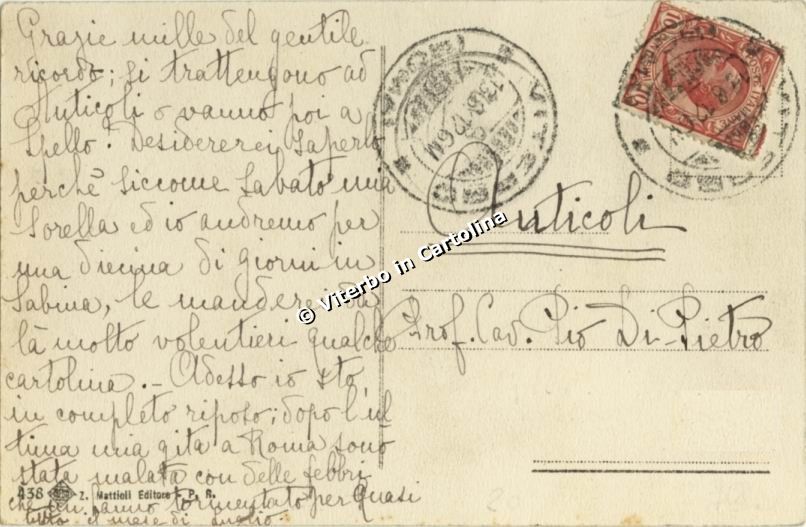 Grazie mille del gentile
ricordo; si trattengono ad
Anticoli o vanno poi a
Spello? Desidererei saperlo
perchè siccome sabato mia
sorella ed io andremo per
una diecina di giorni in
Sabina, le manderei da
là molto volentieri qualche
cartolina. - Adesso io sto
in completo riposo; dopo l'ul
tima mia gita a Roma sono
stata malata con delle febbri
che mi hanno tormentato per quasi
tutto il mese di luglio
438 Z. Mattioli Editore - P. R.
VITERBO
(ROMA)
POSTE ITALIANE
10
Anticoli
Prof. Cav. Pio Di-Pietro
© Viterbo in Cartolina